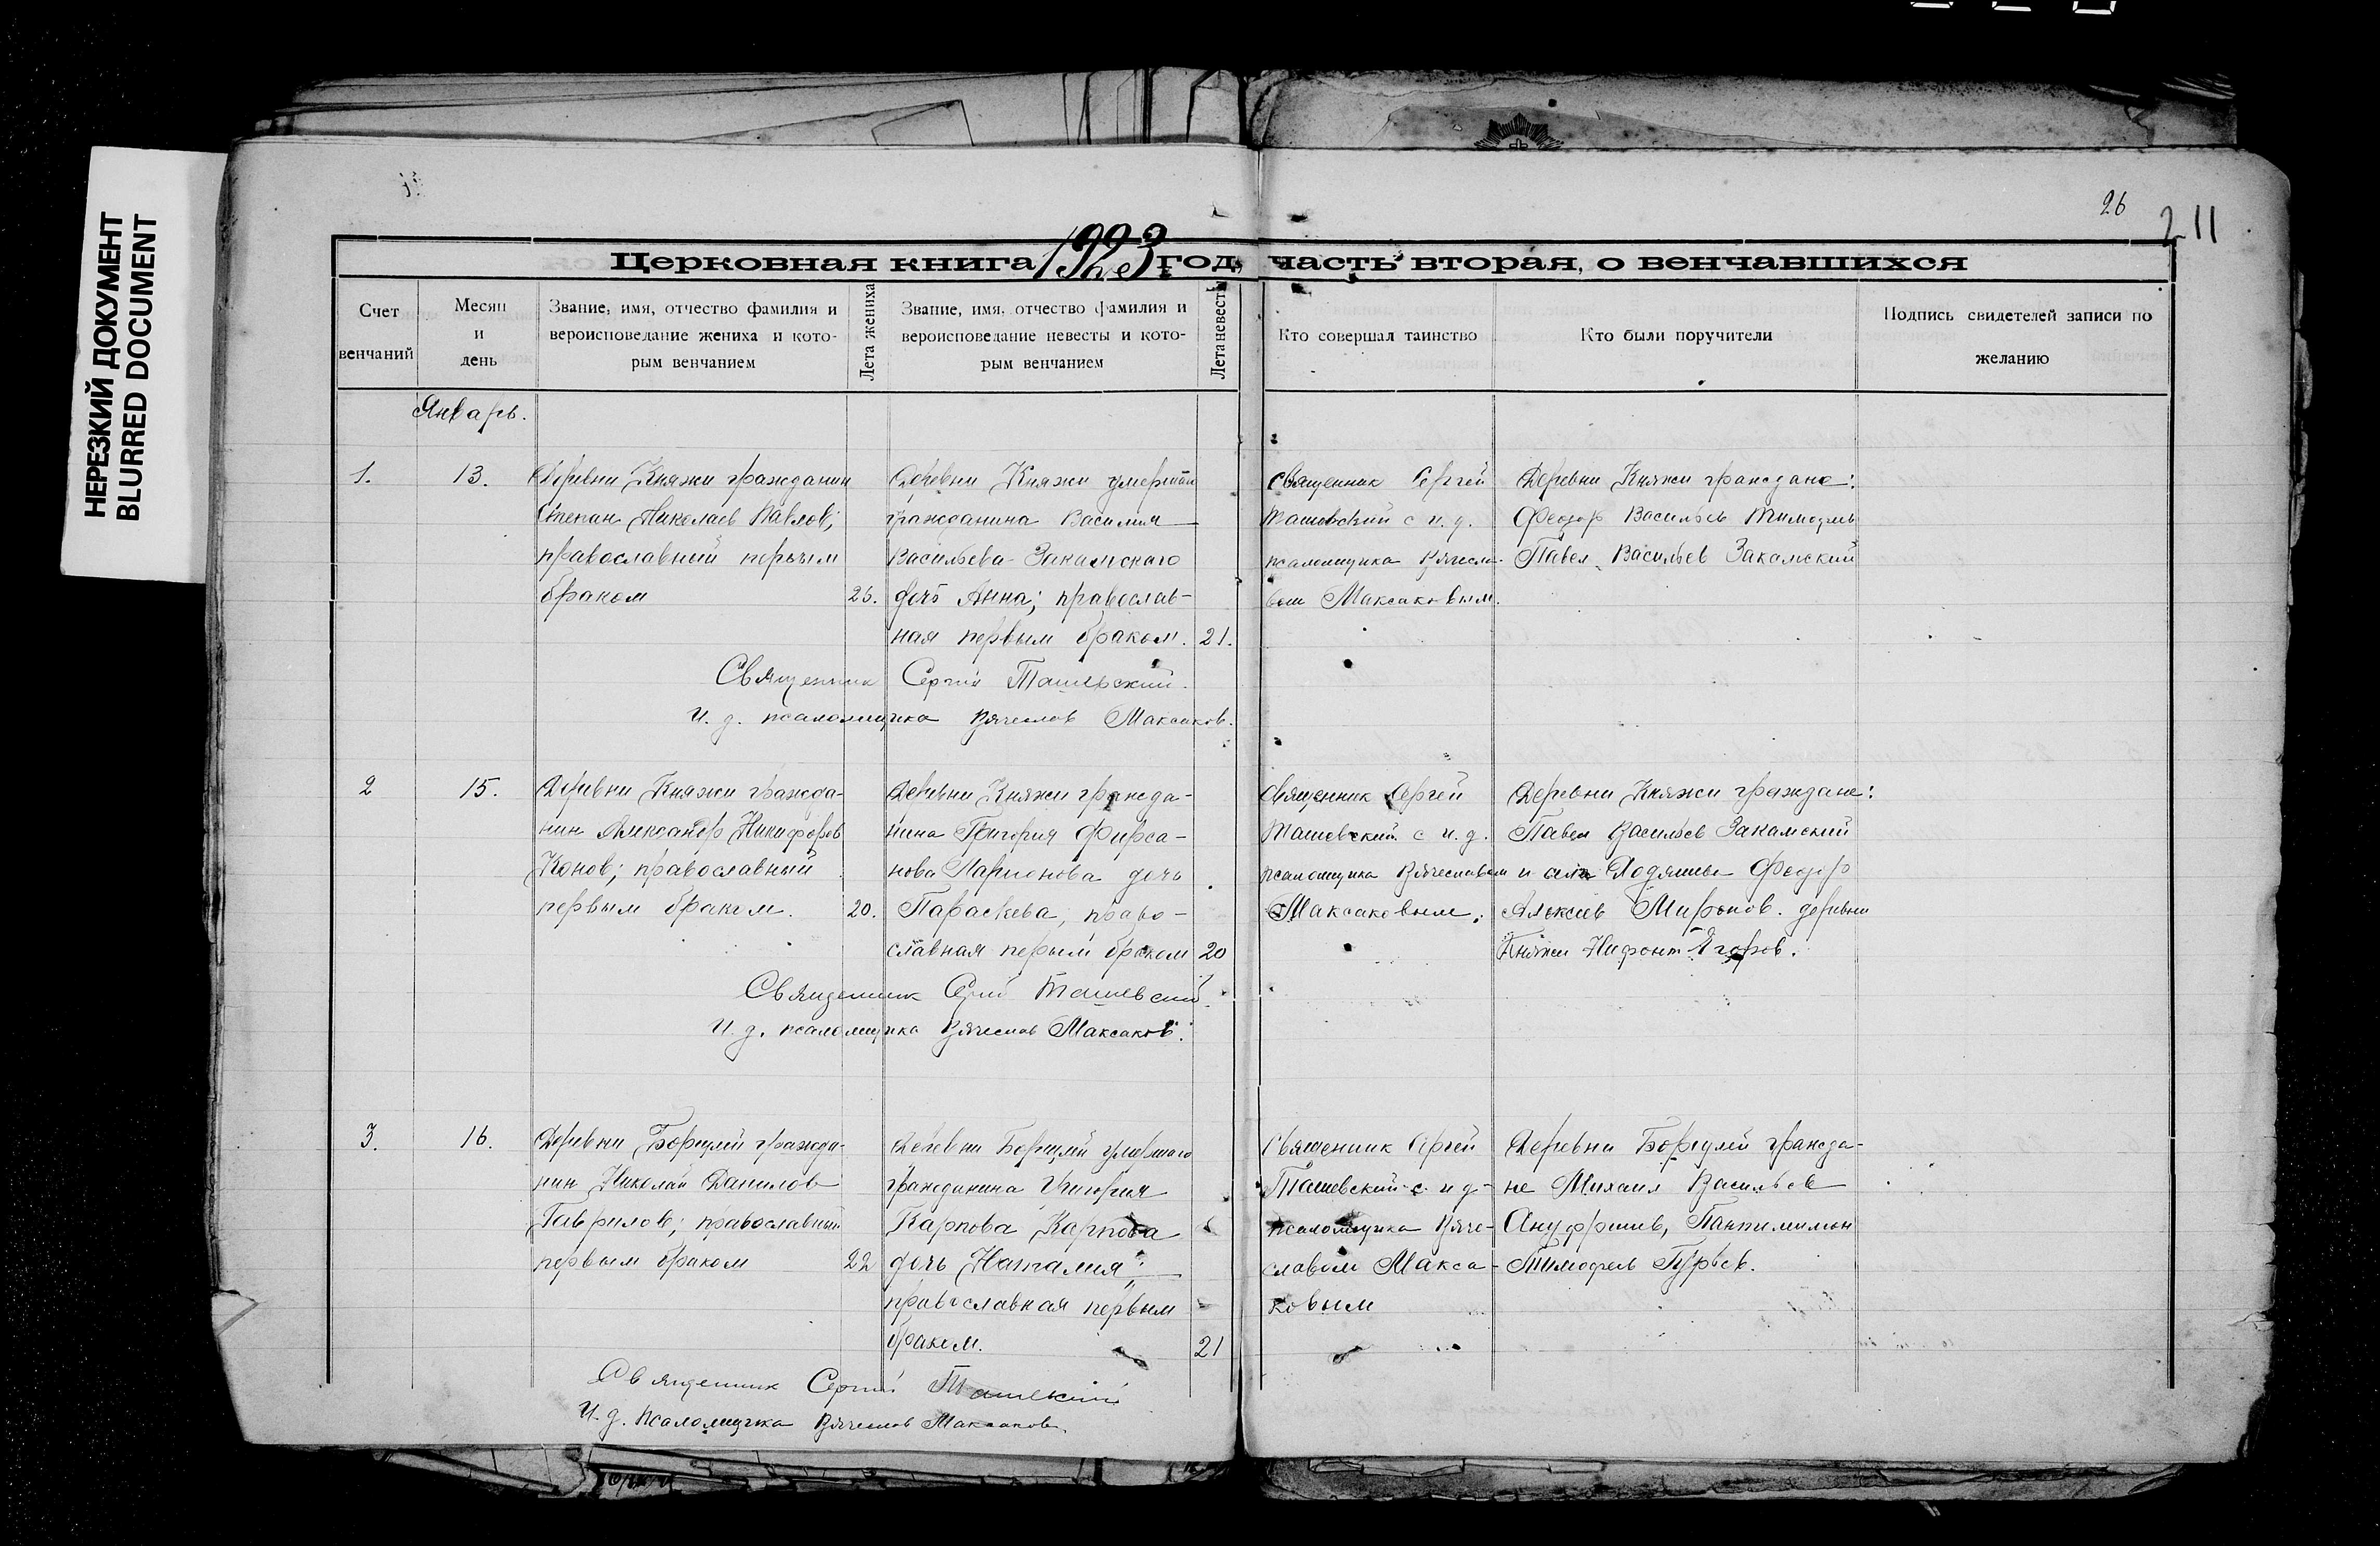 НЕРЕЗКИЙ ДОКУМЕНТ
BLURRED DOCUMENT
26
211
Церковная книга 1923 год, часть вторая, о венчавшихся
Счет венчаний
Месяц и день
Звание, имя, отчество фамилия и вероисповедание жениха и кото-рым венчанием
Лета жениха
Звание, имя, отчество фамилия и вероисповедание невесты и кото-рым венчанием
Лета невесты
Кто совершал таинство
Кто были поручители
Подпись свидетелей записи по желанию
Январь.
1.
13.
Деревни Княжи гражданин
Степан Николаев Павлов;
православный первым
браком
25.
Деревни Княжи умершаго
гражданина Василия
Васильева Закамскаго
дочь Анна; православ-
ная первым браком.
21.
Священник Сергей
Ташевский с и. д.
псаломщика Вячесла-
вом Максаковым.
Деревни Княжи граждане:
Феодор Васильев Тимофеев
Павел Васильев Закамский
Священник Сергий Ташевский.
И. д. псаломщика Вячеслав Максаков.
2
15.
Деревни Княжи гражда-
нин Александр Никифоров
Конов; православный
первым браком.
20.
Деревни Княжи гражда-
нина Григория Фирса-
нова Ларионова дочь
Параскева, право-
славная первым браком
20
Священник Сергей
Ташевский с и. д.
псаломщика Вячеславом
Максаковым.
Деревни Княжи граждане:
Павел Васильев Закамский
и Феодор
Алексеев Миронов. деревни
Княжи Нифонт Егоров.
Священник Сергий Ташевский.
И. д. псаломщика Вячеслав Максаков.
3.
16.
Деревни Борцулей гражда-
нин Николай Данилов
Гаврилов; православный
первым браком
22
Деревни Борцулей умершаго
гражданина Григория
Карпова Карпова
дочь Наталия;
православная первым
браком.
21
Священник Сергей
Ташевский с и д-
псаломщика Вяче-
славом Макса-
ковым
Деревни Борцулей гражда-
не Михаил Васильев
Ануфриев, Пантилимон
Тимофеев Гурьев.
Священник Сергий Ташевский
И. д. Псаломщика Вячеслав Максаков